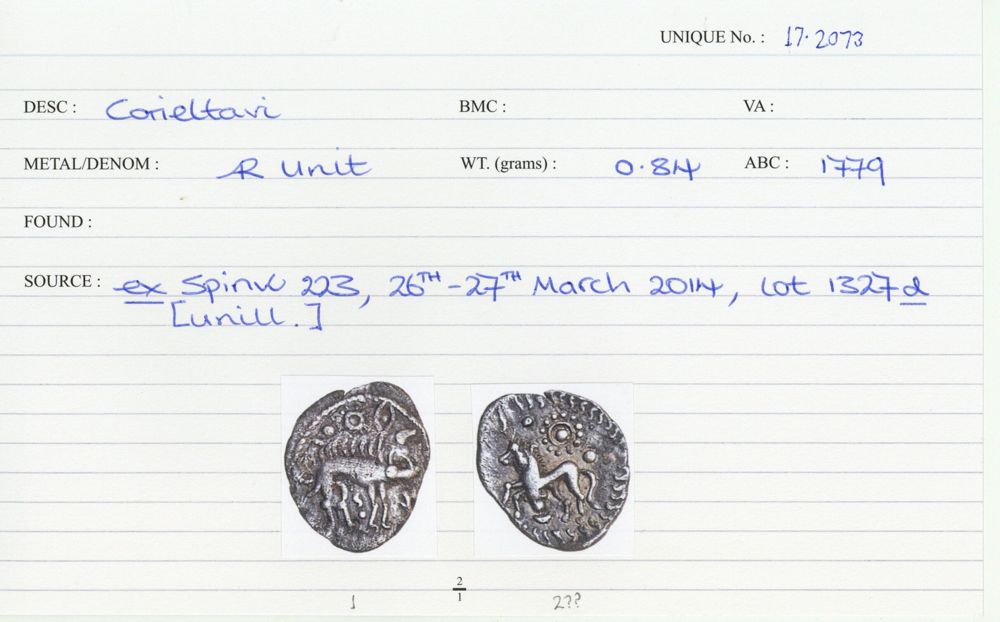 UNIQUE No. : 17.2073
DESC : Corieltavi BMC : VA :
METAL/DENOM : AR Unit WT. (grams) : 0.84 ABC : 1779
FOUND :
SOURCE : ex Spink 223, 26TH-27TH March 2014, lot 1327d
[unill.]
2
1
1 2??